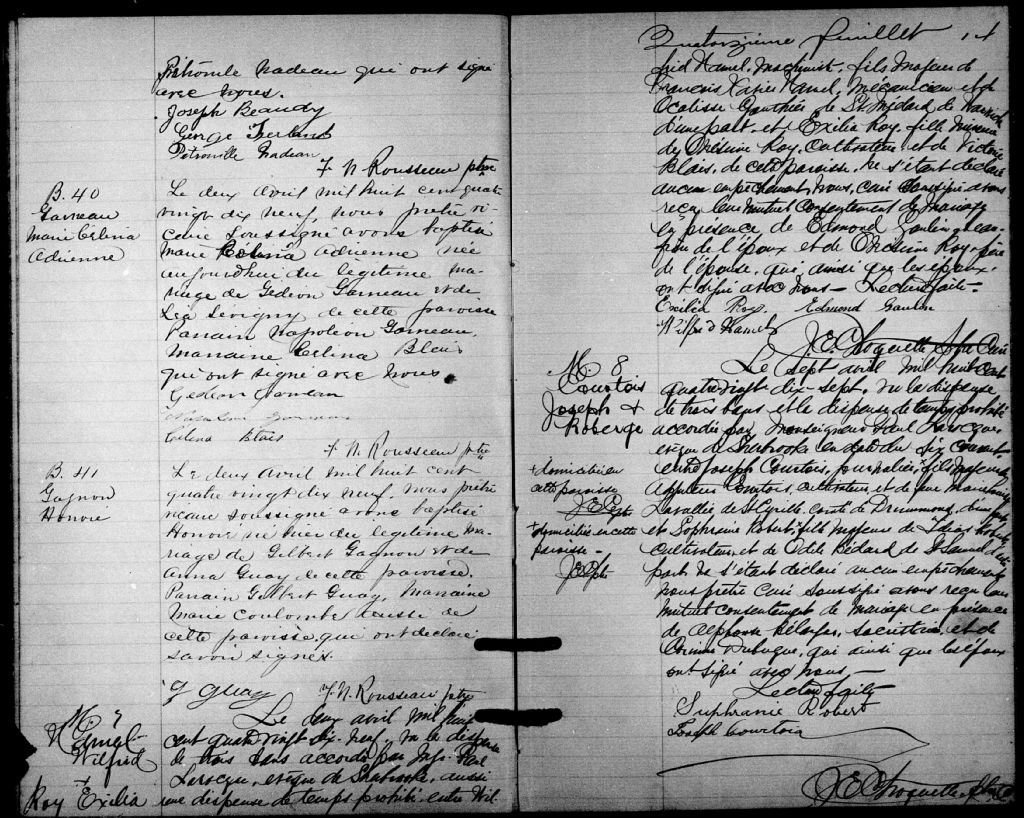 Pétronile Nadeau qui ont signé
avec nous.
Joseph Beaudry
George
Petronille Nadeau
F. N. Rousseau ptre
B. 40
Garneau
Marie Célina
Adrienne
Le deux Avril mil huit cent quatre
vingt dix neuf, nous prêtre vi-
caire soussigné avons baptisé
Marie Célina Adrienne née
aujourdhui du legitime ma-
riage de Gedeon Garneau et de
Lea Sevigny de cette paroisse
Parrain Napoléon Garneau.
Marraine Celina Blais
qui ont signé avec nous
Gedeon Garneau
Celina Blais
F. N. Rousseau ptre
B. 41
Gagnon
Honoré
Le deux Avril mil huit cent
quatre vingt dix neuf, nous prêtre
vicaire soussigné avons baptisé
Honoré né hier du legitime ma-
riage de Gilbert Gagnon et de
Anna Guay de cette paroisse.
Parrain Gilbert Guay, Marraine
Marie Coulombe tous de
cette paroisse qui ont declaré
savoir signer.
G Guay F. N. Rousseau ptre
M. 7
Hamel
Wilfrid
+
Roy Exilia
Le deux avril mil huit
cent quatre vingt dix-neuf, vu la dispense
de trois bans accordée par Mgr. Paul
Larocque, evêque de Sherbrooke, aussi
une dispense de temps prohibé, entre Wil-
Quatorzième feuillet 14
frid Hamel, machinist, fils majeur de
Francois Xavier Hamel, Mécanicien et de
Gauthier de St. Medard de Warwick
d'une part, et Exilia Roy, fille mineure
de Onesime Roy, cultivateur et de Victoire
Blais, de cette paroisse. Ne s'étant déclaré
aucun empêchement, Nous, curé soussigné avons
reçu leur mutuel consentement de mariage
en présence de Edmond beau-
frère de l'époux et de Onésime Roy, père
de l'épouse, qui, ainsi que les époux,
ont signé avec nous — Lecture faite.
Exilia Roy Edmond
Wilfrid Hamel
J. E. Choquette Curé
M. 8
Courtois
Joseph +
Roberge
Le sept avril mil huit cent
quatre vingt dix-sept, vu la dispense
de trois bans et la dispense de temps prohibé
accordée par Monseigneur Paul Larocque
evêque de Sherbrooke en date du six courant
entre Joseph Courtois, journalier, fils majeur de
Courtois, cultivateur, et de feu Marie
Lavallée de St Cyrille comté de Drummond, d'une part
et Sophranie Robert, fille majeure de
cultivateur, et de Odile Bédard de St Samuel d'autre
part. Ne s'étant déclaré aucun empêchement
nous prêtre Curé soussigné avons reçu leur
mutuel consentement de mariage en présence
de Alphonse Bélanger, secrétaire, et de
Corinne qui ainsi que les époux
ont signé avec nous —
Lecture faite
+ domicilié en
cette paroisse
+ domiciliée en cette
paroisse —
Suphranie Robert
Joseph Courtois
J. E. Choquette